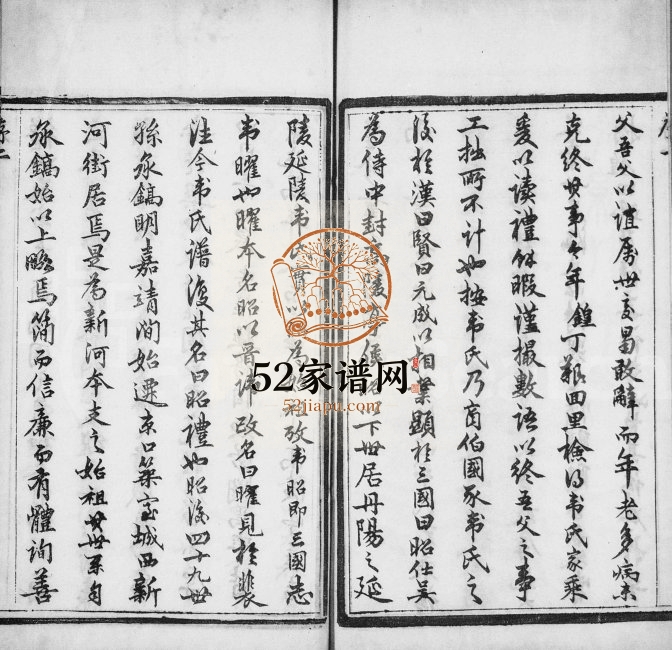 父吾父以誼屬世交曷敢辭而年老多病未
克終其事今年鍾丁艱回里檢得韦氏家乘
爰以读禮餘暇谨撮數语以终吾父之事
工拙所不计也按韦氏乃商伯國豕韦氏之
後於漢曰賢曰元成以相業顯於三國曰昭仕吴
為侍中封高陵亭侯 下世居丹陽之延
陵延陵韦氏 為 攷韦昭即三國志
韦曜也曜本名昭以晋諱改名曰曜見於裴
注今韦氏譜復其名曰昭禮也昭後四十九世
孫永鎬明嘉靖间始遷京口築室城西新
河街居焉是為新河本支之始祖其世系自
永鎬始以上略焉简而信廉而有體詢善
52家谱网
52jiapu.com